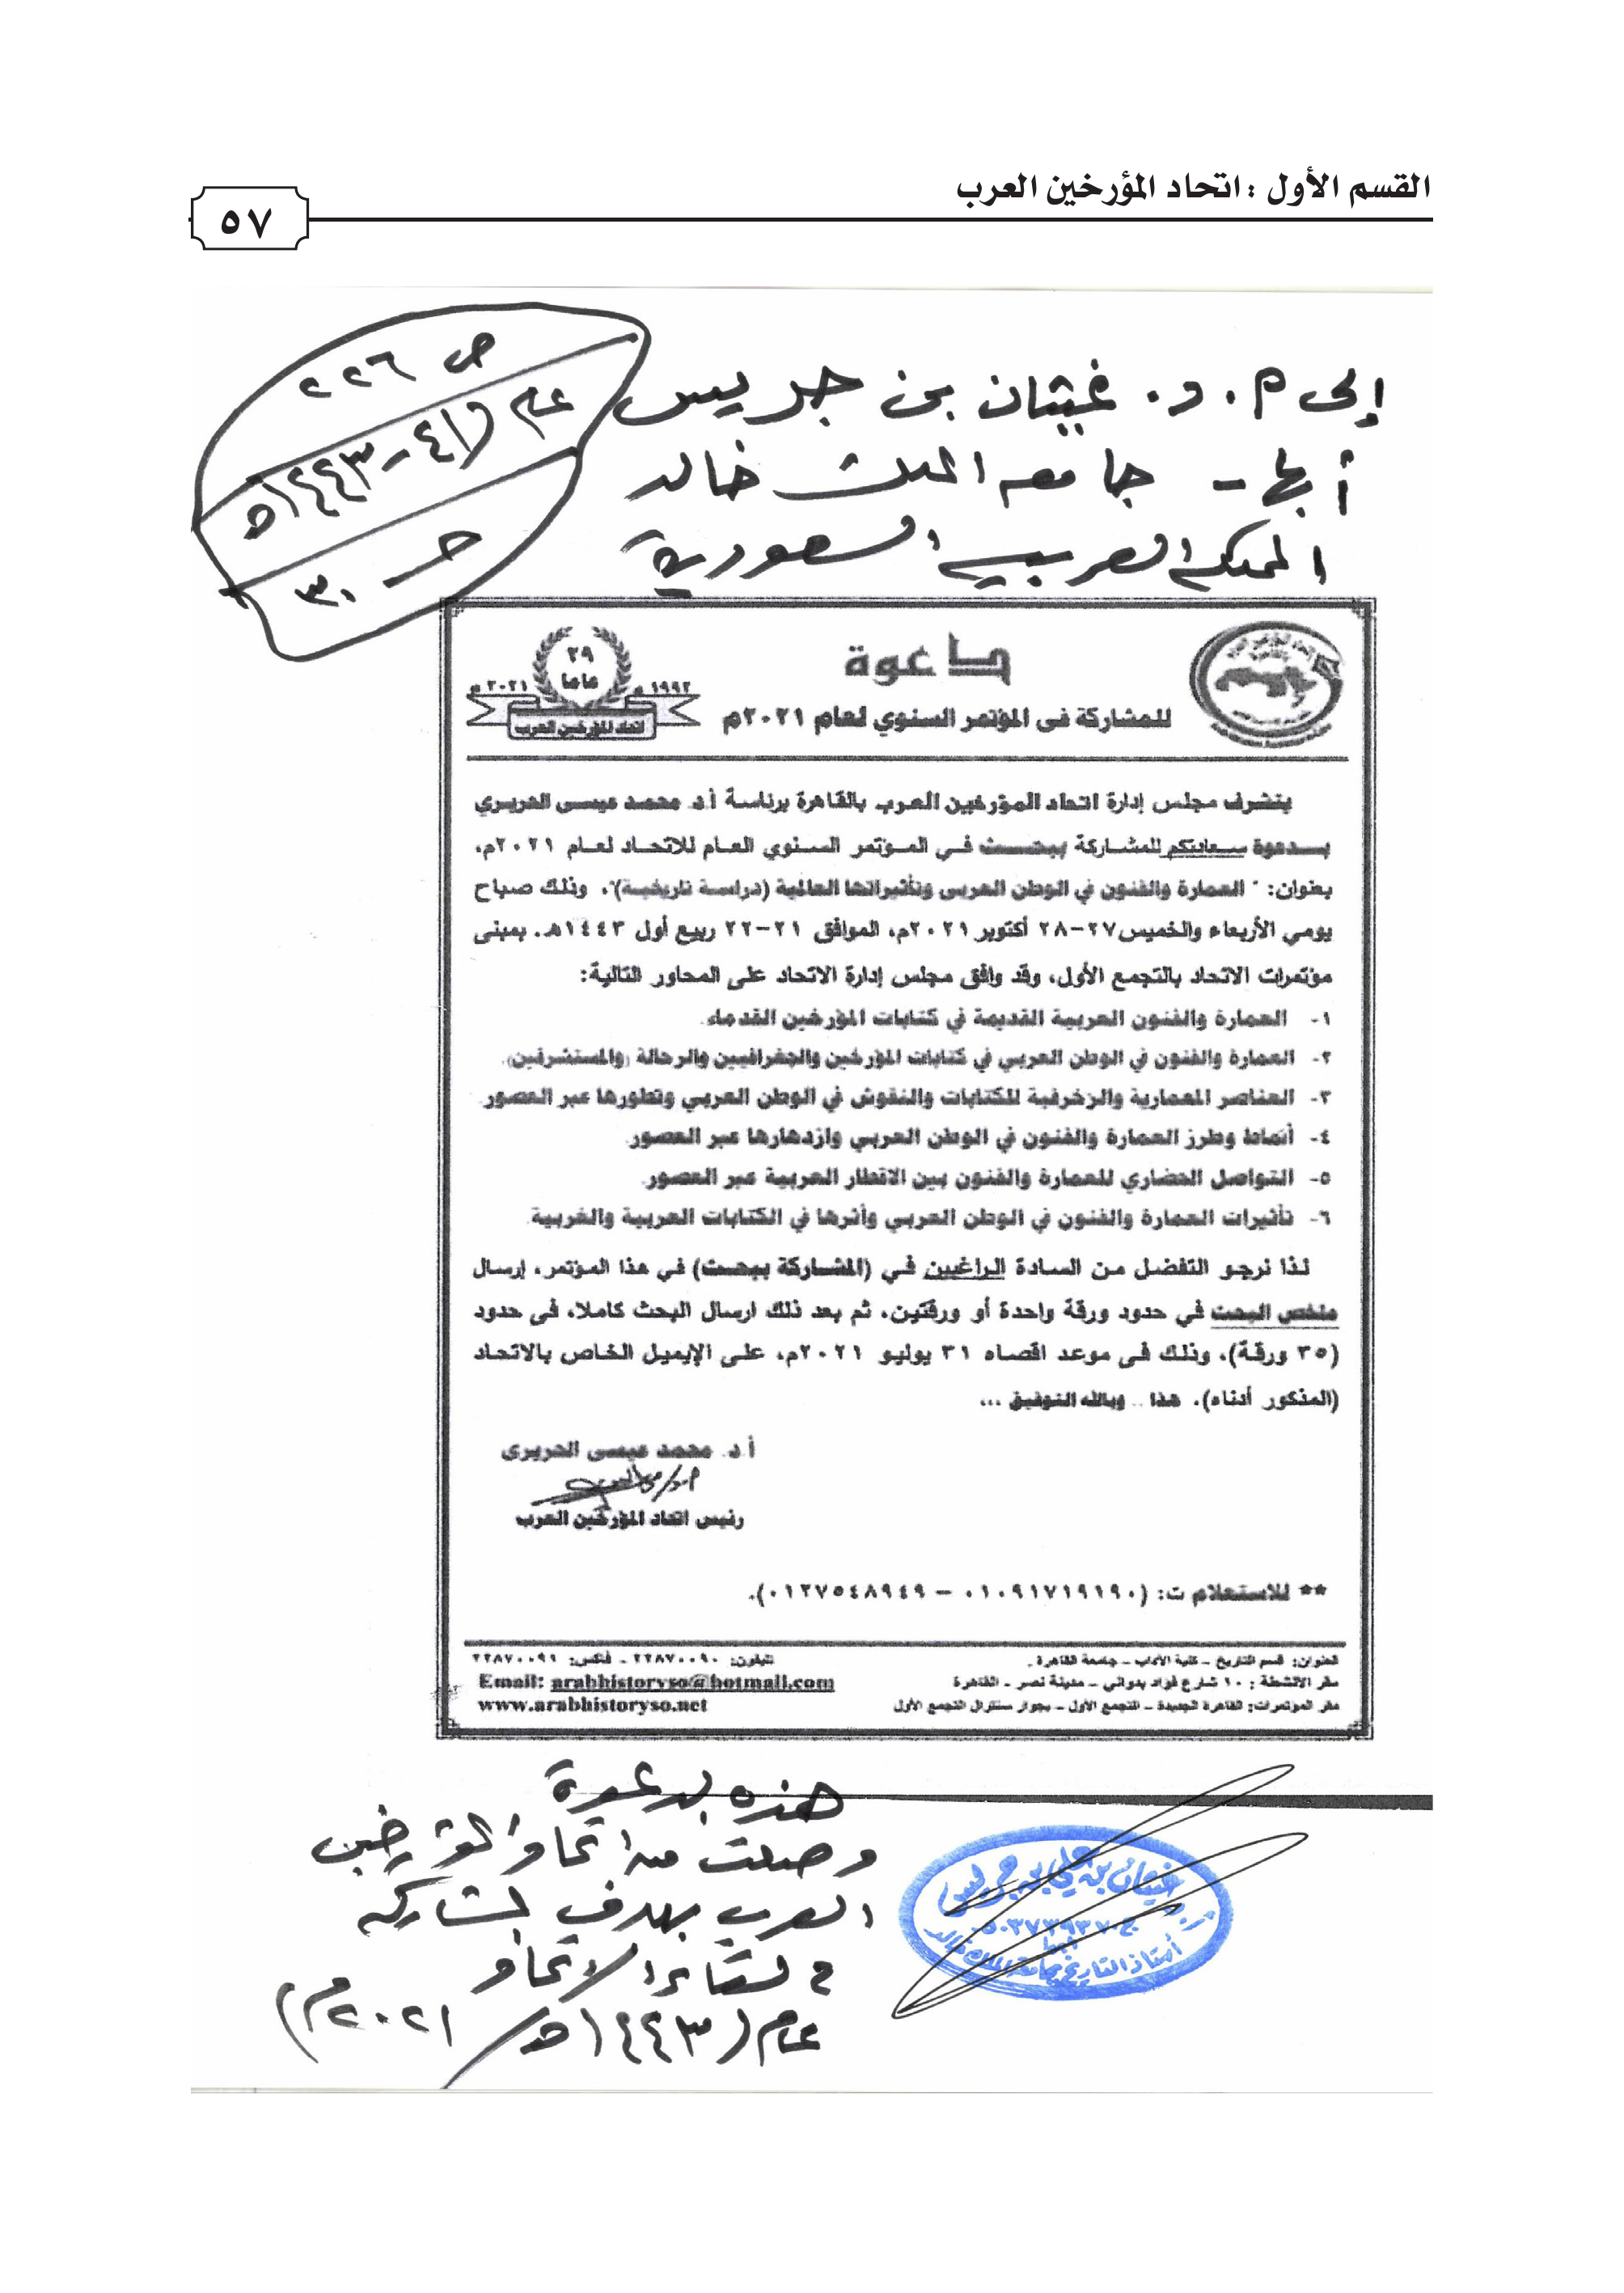 القسم الأول : اتحاد المؤرخين العرب
٥٧
ص ٢٢٦
عام (٤١-١٤٤٣هـ)
جـ ٣٠
إلى م.د. غيثان بن جريس
أبها - جامعة الملك خالد
المملكة العربية السعودية
دعوة
للمشاركة فى المؤتمر السنوي لعام ٢٠٢١م
٢٩
عاما
١٩٩٢م
٢٠٢١م
اتحاد المؤرخين العرب
يتشرف مجلس إدارة اتحاد المؤرخين العرب بالقاهرة برئاسة أ.د. محمد عيسى الحريري
بدعوة سعادتكم للمشاركة ببحث في المؤتمر السنوي العام للاتحاد لعام ٢٠٢١م،
بعنوان: " العمارة والفنون في الوطن العربى وتأثيراتها العالمية (دراسة تاريخية)"، وذلك صباح
يومي الأربعاء والخميس ٢٧-٢٨ أكتوبر ٢٠٢١م، الموافق ٢١-٢٢ ربيع أول ١٤٤٣هـ. بمبنى
مؤتمرات الاتحاد بالتجمع الأول، وقد وافق مجلس إدارة الاتحاد على المحاور التالية:
١- العمارة والفنون العربية القديمة في كتابات المؤرخين القدماء.
٢- العمارة والفنون في الوطن العربي في كتابات المؤرخين والجغرافيين والرحالة (والمستشرقين).
٣- العناصر المعمارية والزخرفية للكتابات والنقوش في الوطن العربي وتطورها عبر العصور.
٤- أنماط وطرز العمارة والفنون في الوطن العربي وازدهارها عبر العصور.
٥- التواصل الحضاري للعمارة والفنون بين الاقطار العربية عبر العصور.
٦- تأثيرات العمارة والفنون في الوطن العربي وأثرها في الكتابات العربية والغربية.
لذا نرجو التفضل من السادة الراغبين في (المشاركة ببحث) في هذا المؤتمر، إرسال
ملخص البحث في حدود ورقة واحدة أو ورقتين، ثم بعد ذلك ارسال البحث كاملا، فى حدود
(٣٥ ورقة)، وذلك فى موعد اقصاه ٣١ يوليو ٢٠٢١م، على الإيميل الخاص بالاتحاد
(المذكور أدناه). هذا .. وبالله التوفيق ...
أ.د. محمد عيسى الحريرى
رئيس اتحاد المؤرخين العرب
** للاستعلام ت: (٠١٠٩١٧١٩١٩٠ – ٠١٢٧٥٤٨٩٤٩).
العنوان: قسم التاريخ - كلية الآداب - جامعة القاهرة.
تليفون: ٢٢٨٧٠٠٩٠ - فاكس: ٢٢٨٧٠٠٩١
مقر الانشطة : ١٠ شارع فؤاد بدواني - مدينة نصر - القاهرة
Email: arabhistoryso@hotmail.com
مقر المؤتمرات: القاهرة الجديدة - التجمع الأول - بجوار سنترال التجمع الأول
www.arabhistoryso.net
هذه الدعوة
وصلت من اتحاد المؤرخين
العرب بهدف المشاركة
في لقاء الاتحاد
عام (١٤٤٣هـ/ ٢٠٢١م)
غيثان بن علي بن جريس
ج.٠٥٠٣٧٣٩٣٧
أبها
أستاذ التاريخ بجامعة الملك خالد